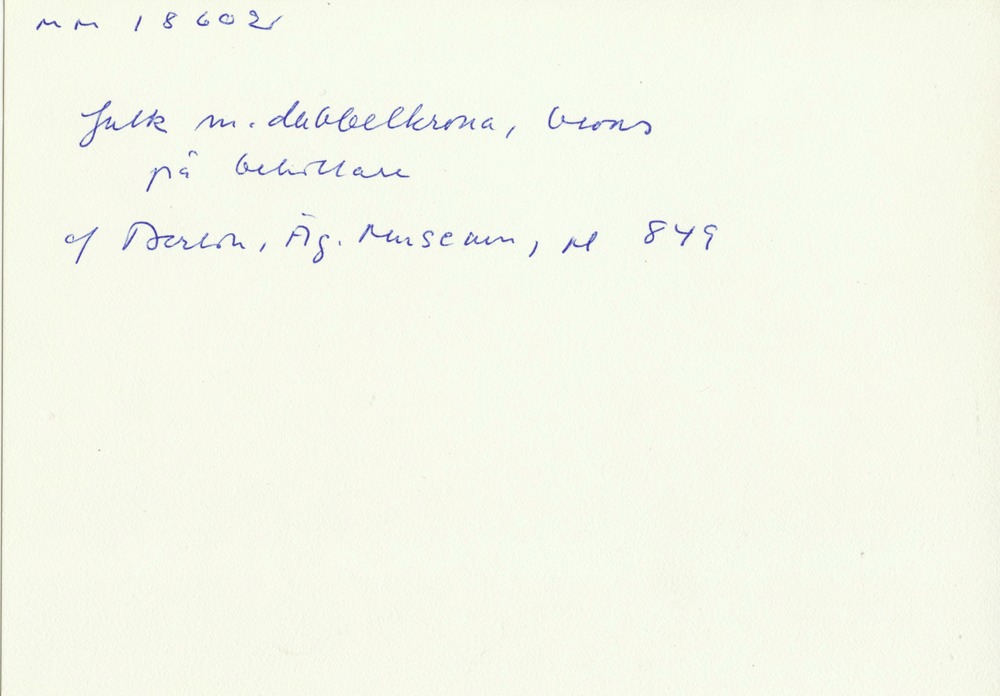 MM 18602
falk m. dubbelkrona, brons
på behållare
cf Berlin, Äg. Museum, M 849